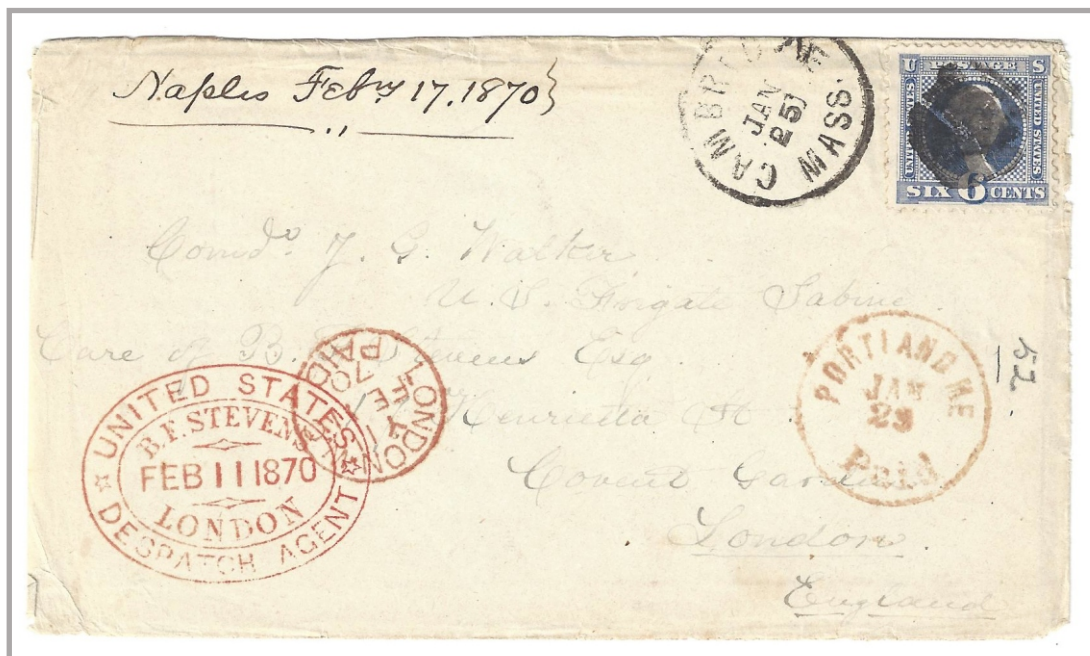 Naples Feby 17. 1870
CAMBRIDGE MASS.
JAN
25
U POSTAGE S
UNITED STATES
UNITED STATES
SIX 6 CENTS
Comdr. J. G. Walker
U. S. Frigate Sabine
Care of B. F. Stevens Esq
Henrietta St
Covent Garden
London.
England
PORTLAND ME
JAN
29
Paid
52
LONDON
FE
70
PAID
UNITED STATES
B.F. STEVENS
FEB 11 1870
LONDON
DESPATCH AGENT